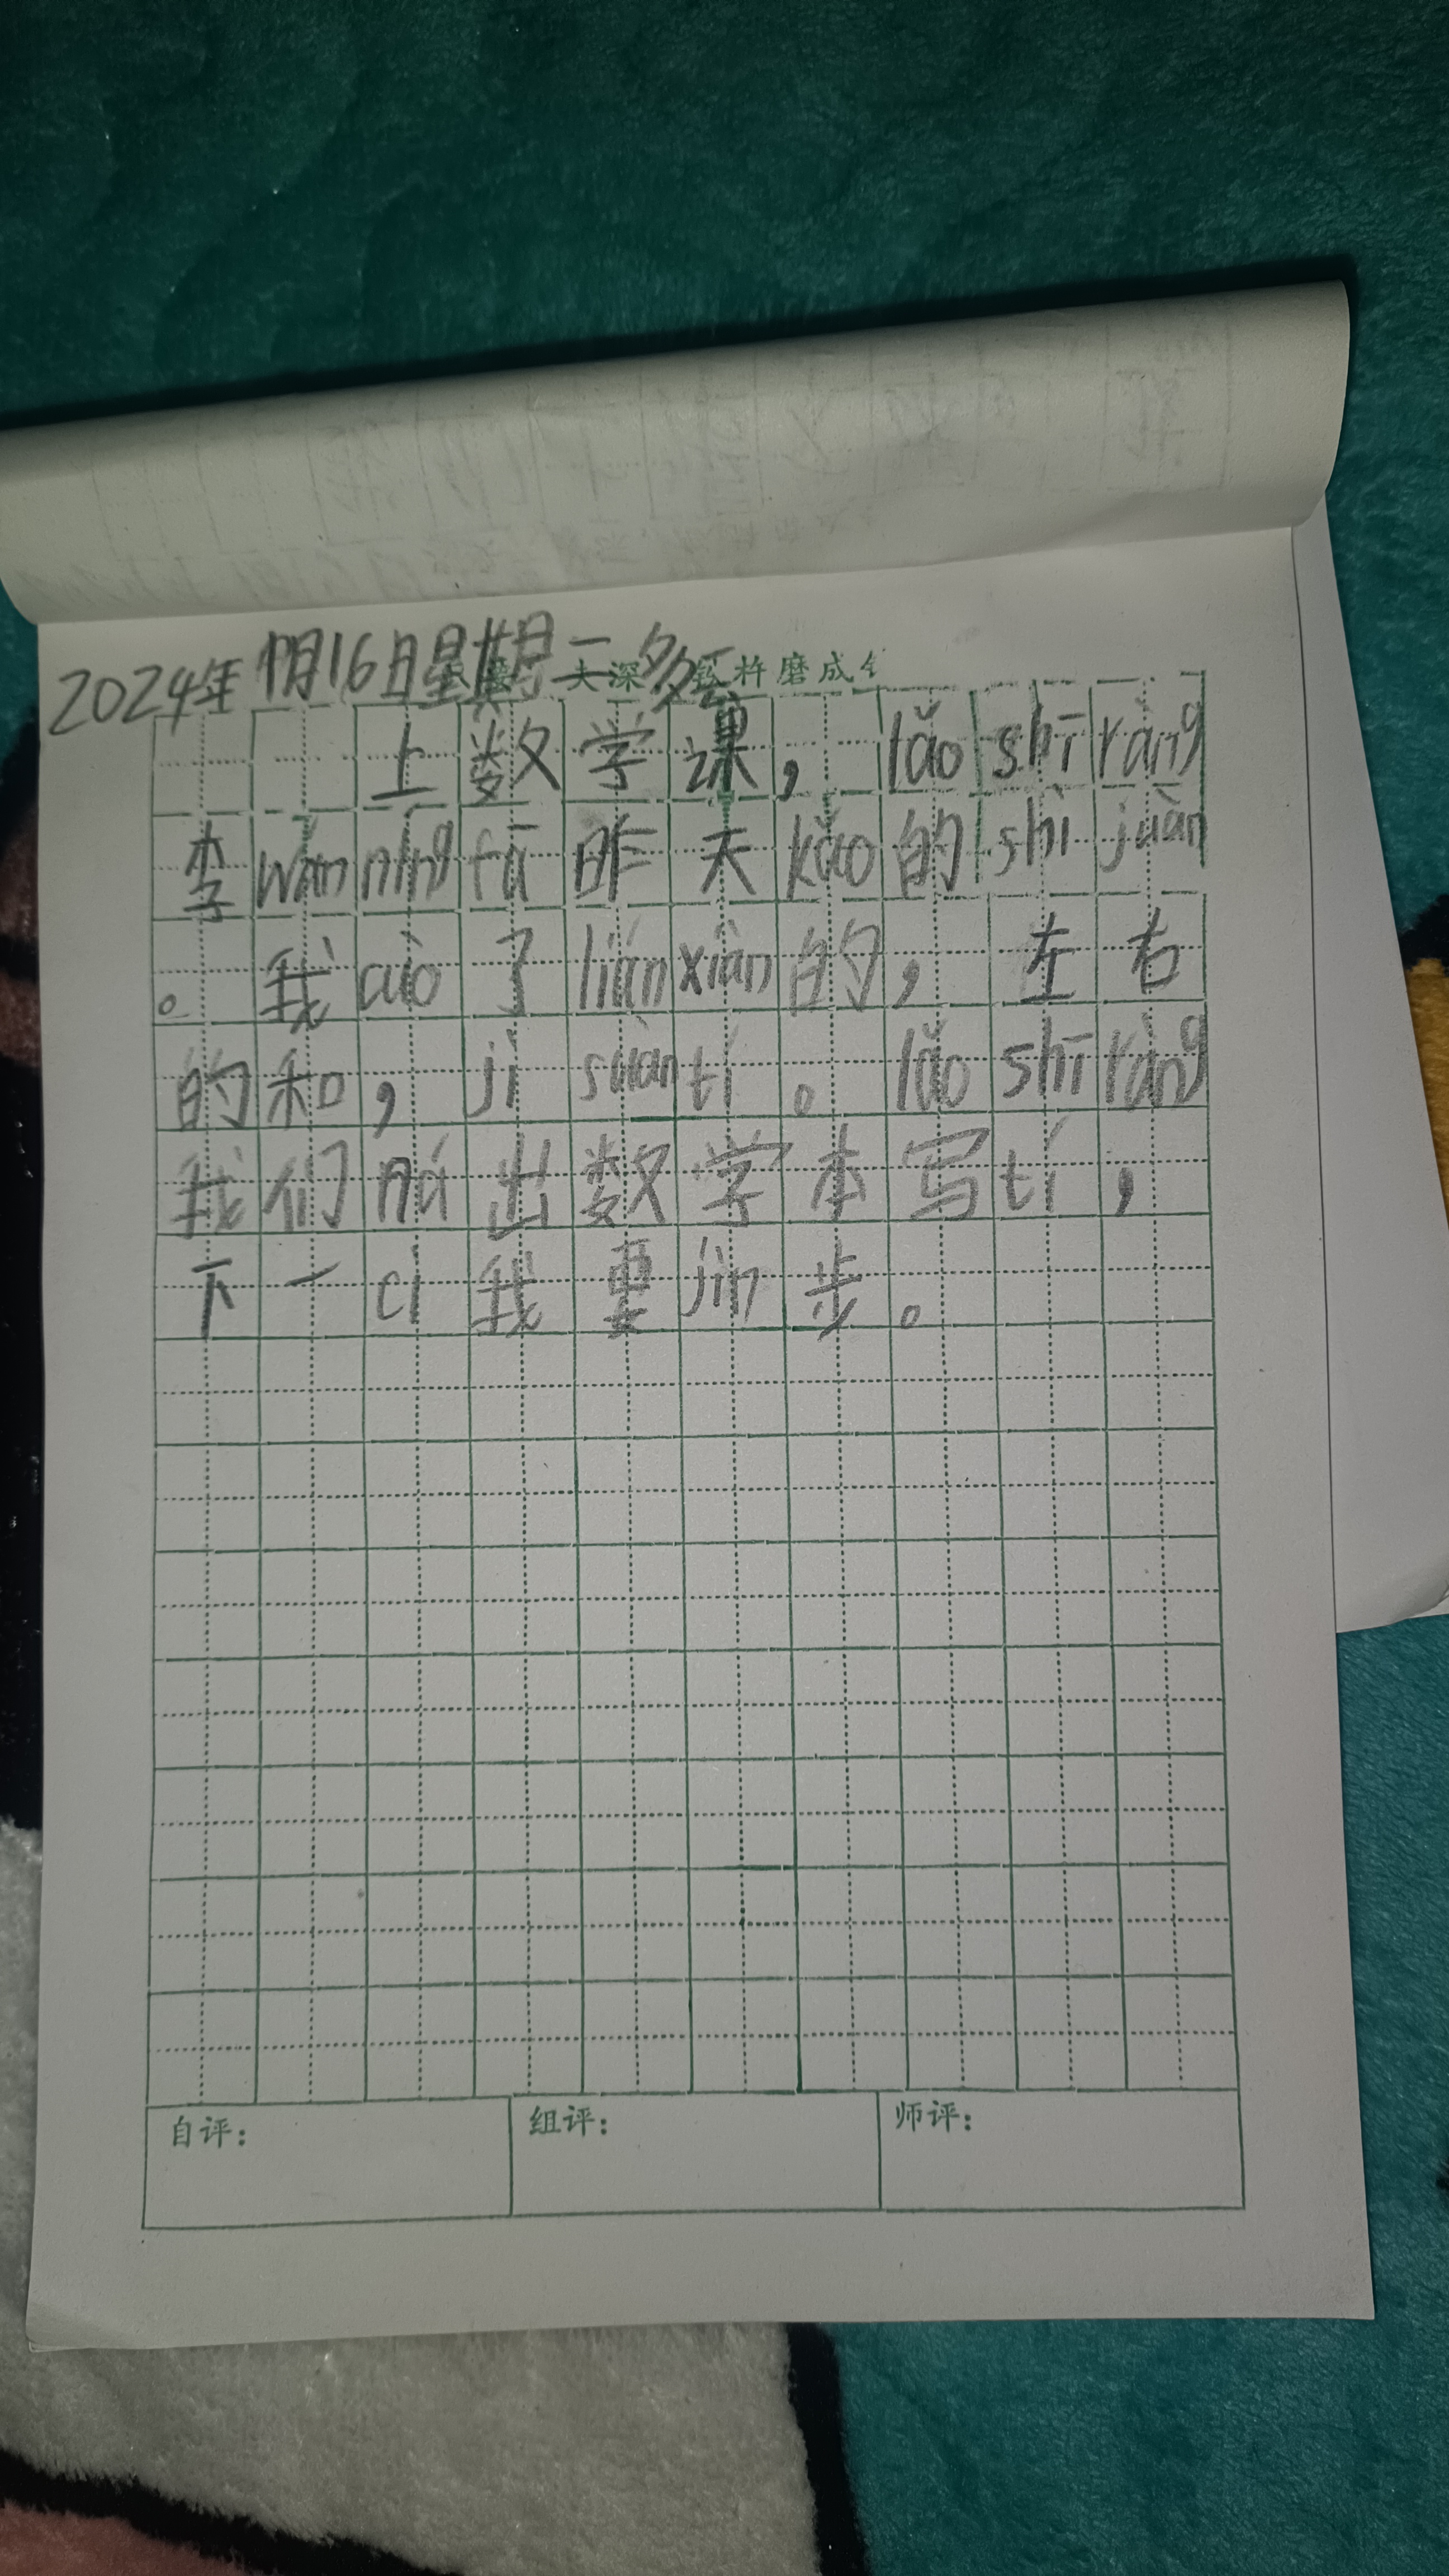 2024年 11月16日星期二多云
夫深 铁杵磨成
上数学课，lǎo shī ràng
李wǎn níng fā 昨天kǎo的shì juàn
。我cuò了lián xiàn的，左右
的和，jì suàn tí。lǎo shī ràng
我们ná出数学本写tí，
下一cì我要jìn步。
自评： 组评： 师评：